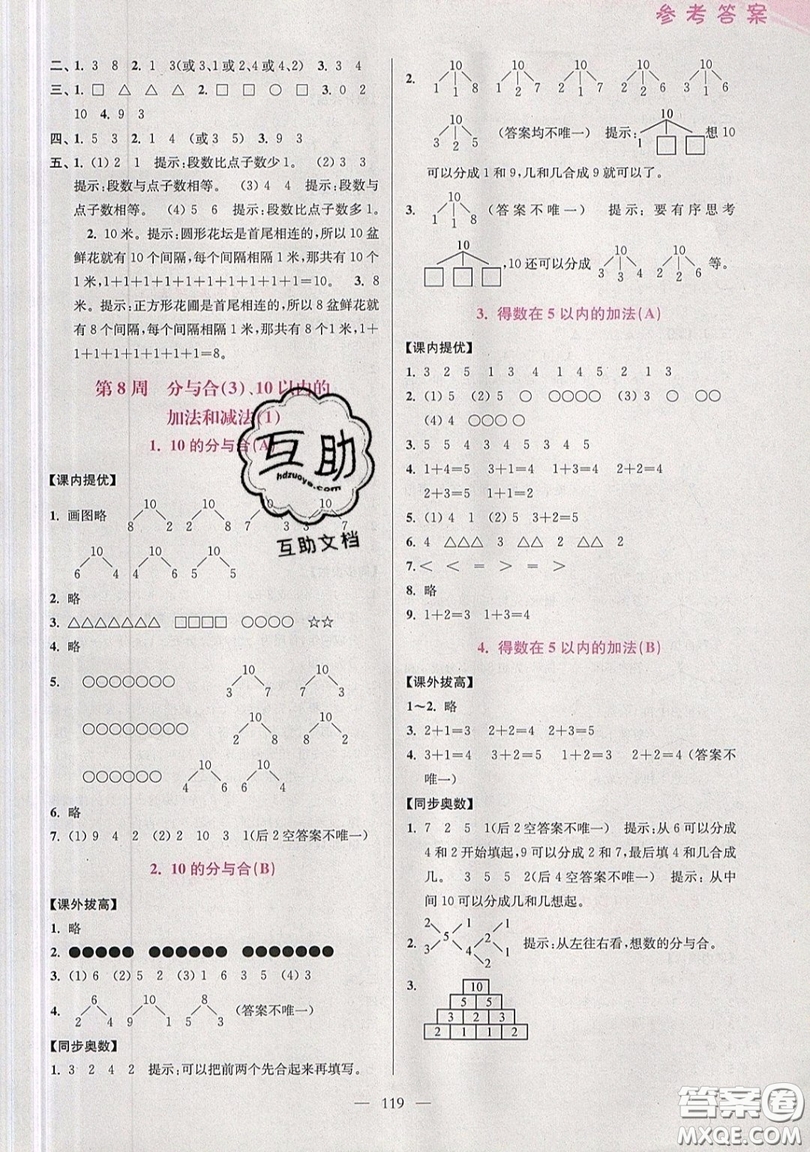 参考答案
二、1. 3 8 2. 1 3(或3、1或2、4或4、2) 3. 3 4
三、1. □ △ △ △ 2. □ □ ○ ○ 3. 0 2
10 4. 9 3
四、1. 5 3 2. 1 4 (或3 5) 3. 9 3
五、1. (1) 2 1 提示:段数比点子数少1。 (2) 3 3
提示:段数与点子数相等。 (3) 4 4 提示:段数与
点子数相等。 (4) 5 6 提示:段数比点子数多1。
2. 10米。提示:圆形花坛是首尾相连的,所以10盆
鲜花就有10个间隔,每个间隔相隔1米,那共有10米,
1+1+1+1+1+1+1+1+1+1=10。 3. 8
米。提示:正方形花圃是首尾相连的,所以8盆鲜花就
有8个间隔,每个间隔相隔1米,那共有8米,1+
1+1+1+1+1+1+1=8。
第8周 分与合(3)、10以内的
加法和减法(1)
1. 10的分与合(A)
【课内提优】
1. 画图略
10 10 10 10
8 2 2 8 7 3 3 7
10 10 10
6 4 4 6 5 5
2. 略
3. △△△△△△△ □□□□ ○○○○ ☆☆
4. 略
5. ○○○○○○○
10 10
3 7 7 3
○○○○○○○○
10 10
2 8 8 2
○○○○○○
10 10
4 6 6 4
6. 略
7. (1) 9 4 2 (2) 2 10 3 1(后2空答案不唯一)
2. 10的分与合(B)
【课外拔高】
1. 略
2. ●●●●● ●●●●●● ●●●●●●●
3. (1) 6 (2) 5 2 (3) 1 6 3 5 (4) 5
4. 6 10 9 8 (答案不唯一)
2 4 9 1 5 3
【同步奥数】
1. 3 2 4 2 提示:可以把前两个先合起来再填写。
2. 10 10 10 10 10
1 1 8 1 2 7 2 1 7 2 2 6 3 1 6
10
3 2 5 (答案均不唯一) 提示: 10 想10
1 □ □
可以分成1和9,几和几合成9就可以了。
3. 10
1 1 8 (答案不唯一) 提示:要有序思考
10 10 10
□ □ □ ,10还可以分成 3 3 4 4 4 2 等。
3. 得数在5以内的加法(A)
【课内提优】
1. 3 2 5 1 3 4 1 3 2
2. (1) 5 (2) ○○○○○ (3) ○ ○○
(4) 4 ○○ ○○○ ○
3. 5 5 4 5 3 4 4 5 5
4. 1+4=5 3+2=5 1+3=4
2+3=5 1+1=2
5. (1) 4 (2) 4 (3) 5
6. 4 △△△ △△△ 3 △△ △△ 2
7. < < = > = <
8. 略
9. 1+2=3 1+3=4
4. 得数在5以内的加法(B)
【课外拔高】
1~2. 略
3. 2+1=3 2+2=4 2+3=5
4. 3+1=4 1+3=4 2+2=4(答案不
唯一)
【同步奥数】
1. 7 2 5 1(后2空答案不唯一) 提示:从6可以分成
4和2开始填起,8可以分成2和7,最后填4和几合成
几。 3 5 5 2(答案不唯一) 提示:从中
间10可以分成几和几想起。
2. 2 2 1
5 4 2
3 2 1 提示:从左往右看,想数的分与合。
3. 10
5 5
3 2 3
2 1 1 2
119
互助
hdzuoye.com
互助文档
答案圈
MXQE.COM